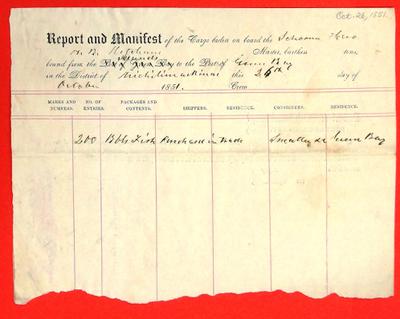 Oct. 26, 1851.
Report and Manifest of the Cargo laden on board the Schooner
Master, burthen tons
bound from the Port of Green Bay
in the District of Michilimackinac this 26th day of
October 1851. Crew
MARKS AND NUMBERS. NO. OF ENTRIES. PACKAGES AND CONTENTS. SHIPPERS. RESIDENCE. CONSIGNEES. RESIDENCE.
200 Bbls Fish Purchased in Trade Green Bay